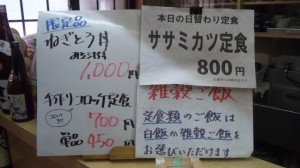 限定品
ねぎとろ丼
みそ汁付
1,000円
手作りコロッケ定食
700円
450円
本日の日替わり定食
ササミカツ定食
800円
雑穀ご飯
定食類のご飯は
白飯か雑穀ご飯を
お選びいただけます